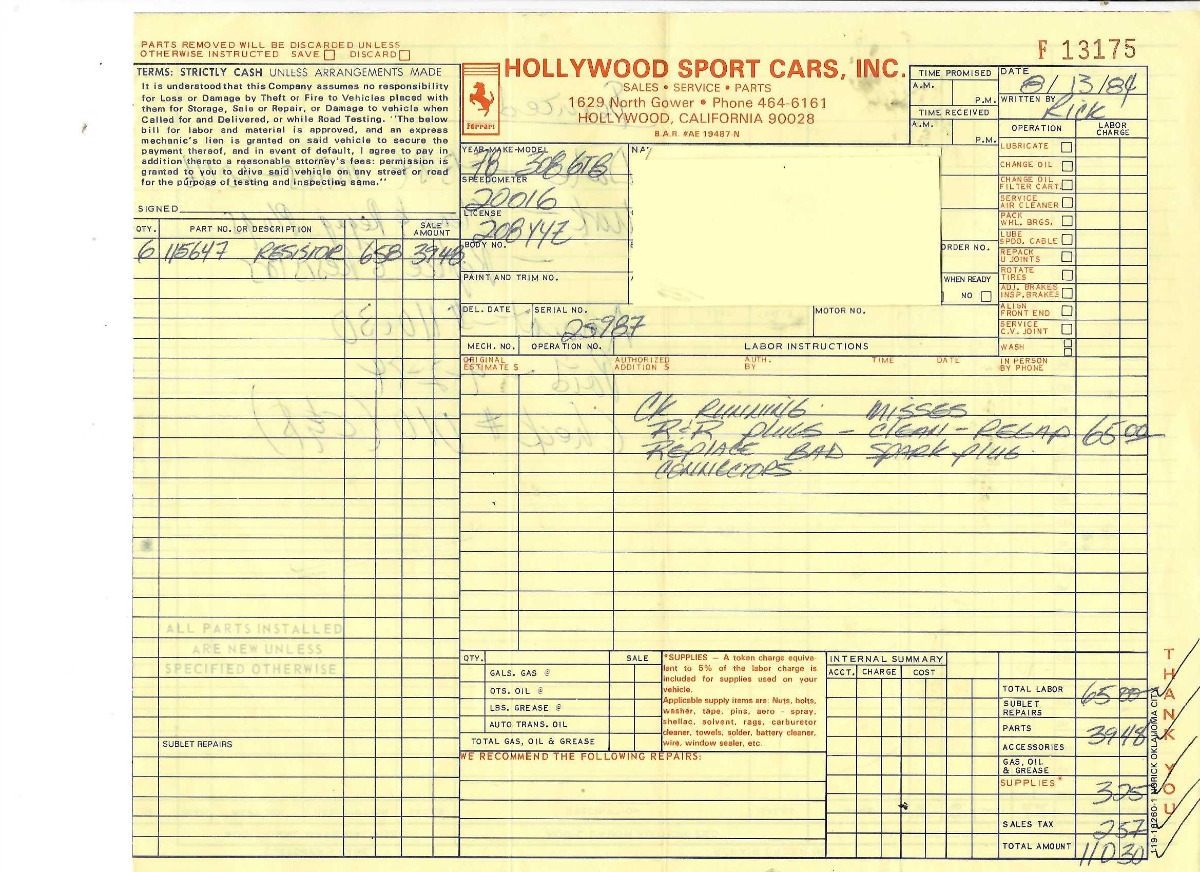 PARTS REMOVED WILL BE DISCARDED UNLESS
OTHERWISE INSTRUCTED SAVE DISCARD
TERMS: STRICTLY CASH UNLESS ARRANGEMENTS MADE
It is understood that this Company assumes no responsibility
for Loss or Damage by Theft or Fire to Vehicles placed with
them for Storage, Sale or Repair, or Damage to vehicle when
Called for and Delivered, or while Road Testing. "The below
bill for labor and material is approved, and an express
mechanic's lien is granted on said vehicle to secure the
payment thereof, and in event of default, I agree to pay in
addition thereto a reasonable attorney's fees: permission is
granted to you to drive said vehicle on any street or road
for the purpose of testing and inspecting same."
SIGNED
QTY. PART NO. OR DESCRIPTION SALE AMOUNT
6 115647 RESISTOR 658 3948
ALL PARTS INSTALLED
ARE NEW UNLESS
SPECIFIED OTHERWISE
SUBLET REPAIRS
Ferrari
HOLLYWOOD SPORT CARS, INC.
SALES • SERVICE • PARTS
1629 North Gower • Phone 464-6161
HOLLYWOOD, CALIFORNIA 90028
B.A.R. #AE 19487 N
F 13175
TIME PROMISED
A.M.
P.M.
TIME RECEIVED
A.M.
P.M.
DATE 8/13/84
WRITTEN BY Rick
YEAR-MAKE-MODEL
76 308GTB
SPEEDOMETER
20016
LICENSE
208YYZ
BODY NO.
PAINT AND TRIM NO.
DEL. DATE
SERIAL NO.
25987
MOTOR NO.
ORDER NO.
WHEN READY
NO
OPERATION LABOR CHARGE
LUBRICATE
CHANGE OIL
CHANGE OIL FILTER CART.
SERVICE AIR CLEANER
PACK WHL. BRGS.
LUBE SPDO. CABLE
REPACK U JOINTS
ROTATE TIRES
ADJ. BRAKES INSP. BRAKES
ALIGN FRONT END
SERVICE C.V. JOINT
WASH
MECH. NO. OPERATION NO. LABOR INSTRUCTIONS
ORIGINAL ESTIMATE $ AUTHORIZED ADDITION $ AUTH. BY TIME DATE IN PERSON BY PHONE
CK RUNNING. MISSES
R&R PLUGS - CLEAN - REGAP 65 00
REPLACE BAD SPARK PLUG
CONNECTORS.
QTY. SALE
GALS. GAS @
QTS. OIL @
LBS. GREASE @
AUTO TRANS. OIL
TOTAL GAS, OIL & GREASE
*SUPPLIES — A token charge equiva-
lent to 5% of the labor charge is
included for supplies used on your
vehicle.
Applicable supply items are: Nuts, bolts,
washer, tape, pins, aero - spray,
shellac, solvent, rags, carburetor
cleaner, towels, solder, battery cleaner,
wire, window sealer, etc.
WE RECOMMEND THE FOLLOWING REPAIRS:
INTERNAL SUMMARY
ACCT. CHARGE COST
TOTAL LABOR 65 00
SUBLET REPAIRS
PARTS 3948
ACCESSORIES
GAS, OIL & GREASE
SUPPLIES* 325
SALES TAX 257
TOTAL AMOUNT 11030
THANK YOU
119-18260-1 NORICK OKLAHOMA CITY